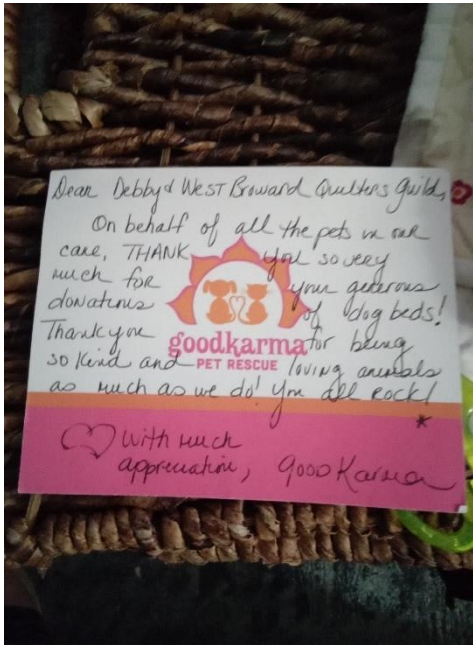 Dear Debby & West Broward Quilters Guild,
On behalf of all the pets in our
care, THANK you so very
much for your generous
donations of dog beds!
Thank you for being
goodkarma
PET RESCUE
so kind and loving animals
as much as we do! You all Rock!
*
♡ With much
appreciation, Good Karma